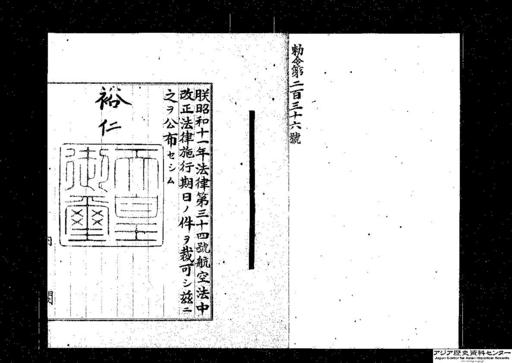 勅令第二百三十六號
朕昭和十一年法律第三十四號航空法中
改正法律施行期日ノ件ヲ裁可シ茲ニ
之ヲ公布セシム
裕仁
天皇
御璽
内
閣
アジア歴史資料センター
Japan Center for Asian Historical Records